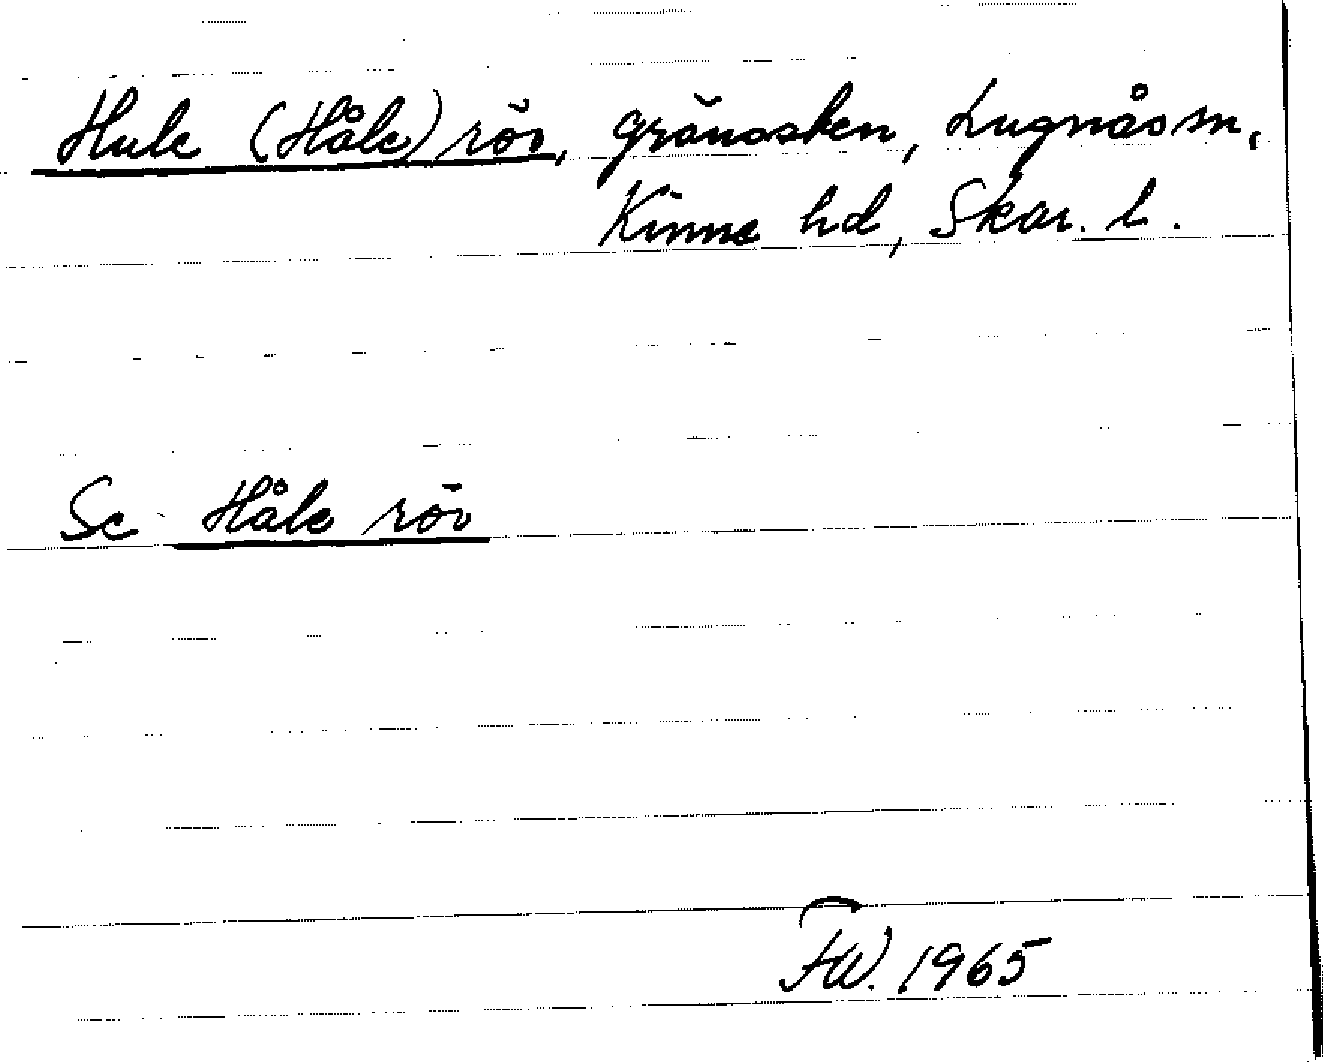 Hule (Håle) röv, gränssten, Lugnås sn,
Kinne hd, Skar. l.
Se Håle röv
FW. 1965